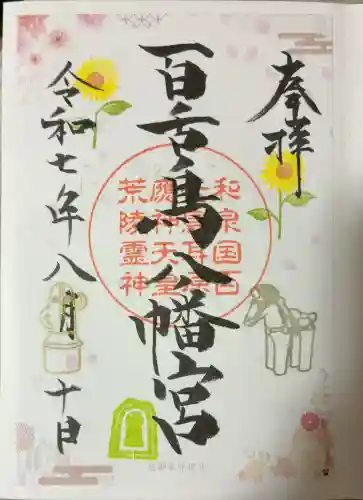 奉拝
百舌鳥八幡宮
令和七年八月十日
和泉国百
應神天皇
荒陵霊神